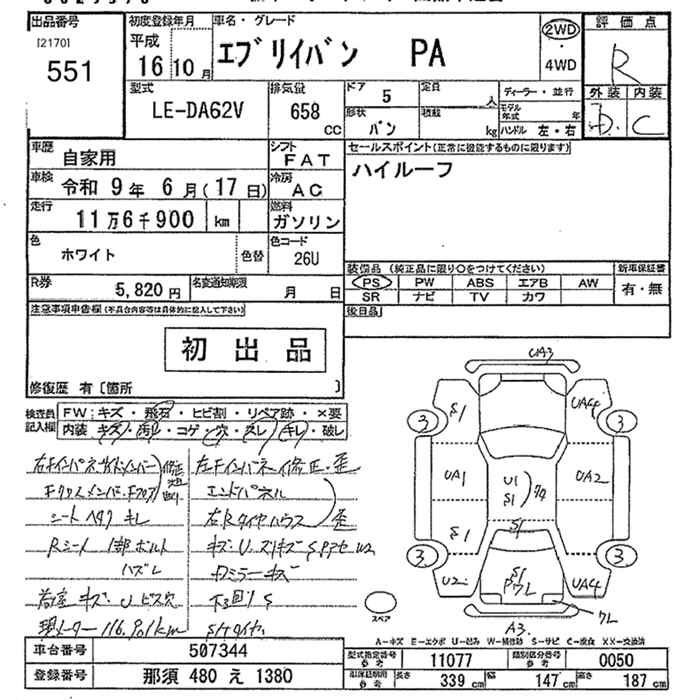 出品番号
[2170]
551
初度登録年月
平成
16 10月
車名・グレード
エブリイバン PA
2WD
4WD
評価点
R
外装 内装
D. C
型式
LE-DA62V
排気量
658 cc
ドア 5
定員 人
形状 バン
積載 kg
ディーラー・並行
モデル年式 年
ハンドル 左・右
車歴 自家用
シフト FAT
車検 令和 9年 6月(17日)
冷房 AC
走行 11万6千900 km
燃料 ガソリン
色 ホワイト 色替
色コード 26U
セールスポイント(正常に機能するものに限ります)
ハイルーフ
R券 5,820円
名変通知期限 月 日
装備品 (純正品に限り○をつけてください)
新車保証書
PS PW ABS エアB AW
SR ナビ TV カワ
有・無
後日品
注意事項申告欄(不具合内容等は具体的に記入して下さい)
初出品
修復歴 有〔箇所 〕
検査員記入欄
FW: キズ・飛石・ヒビ割・リペア跡・×要
内装 キズ・汚れ・コゲ・穴・スレ・キレ・破レ
右Fインパネ・サイドメンバー
修正
左Fインパネ修正・歪
Fクロスメンバー・Fフロア
エンドパネル
シート ヘタリ キレ
左右Rタイヤハウス
歪
Rシート 1部ボルト
ハズレ
キズ・U
ミラーキズ
キズ・U ビス穴
下回りS
現メーター116,901km
Sケタイヤ
UA3
S1
UA4
3
3
UA1
U1
S1
UA2
S1
S1
3
3
S1
U2
UA4
ワレ
A3
スペア
A-キズ E-エクボ U-凹み W-補修跡 S-サビ C-腐食 XX-交換済
車台番号 507344
登録番号 那須 480 え 1380
型式指定番号 参考 11077
類別区分番号 参考 0050
長さ 339cm
幅 147cm
高さ 187cm